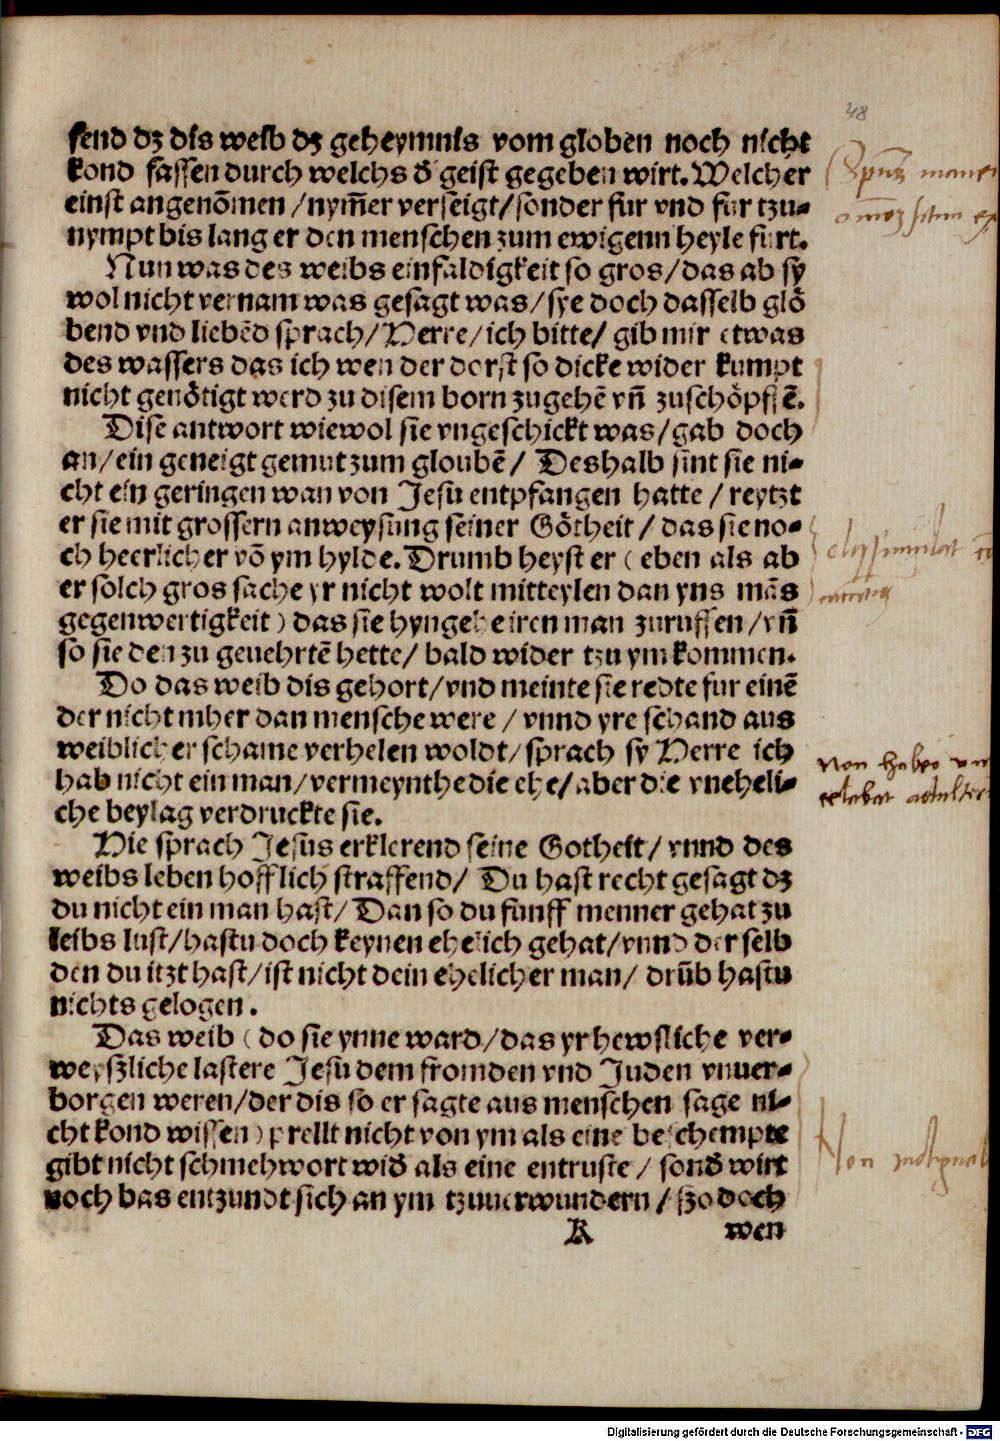 48
send dz dis weib dz geheymnis vom globen noch nicht
kond fassen durch welchs d̄ geist gegeben wirt. Welcher
einst angenōmen / nym̄er verseigt / sonder fur vnd fur tzu-
nympt bis lang er den menschen zum ewigenn heyle furt.
Nun was des weibs einfaldigkeit so gros / das ab sy
wol nicht vernam was gesagt was / sye doch dasselb glō
bend vnd liebēd sprach / Herre / ich bitte / gib mir etwas
des wassers das ich wen der dorst so dicke wider kumpt
nicht genötigt werd zu disem born zugehē vn̄ zuschöpffē.
Dise antwort wiewol sie vngeschickt was / gab doch
an / ein geneigt gemut zum gloubē / Deshalb sint sie ni-
cht ein geringen wan von Jesu entpfangen hatte / reytzt
er sie mit grossern anweysūng seiner Götheit / das sie no-
ch heerlicher vō ym hylde. Drumb heyst er ( eben als ab
er solch gros sache yr nicht wolt mitteylen dan yns mās
gegenwertigkeit ) das sie hyngehe iren man zuruffen / vn̄
so sie den zu geuehrtē hette / bald wider tzu ym kommen.
Do das weib dis gehort / vnd meinte sie redte fur einē
der nicht mher dan mensche were / vnnd yre schand aus
weiblicher schame verhelen woldt / sprach sy Herre ich
hab nicht ein man / vermeynthe die ehe / aber die vneheli-
che beylag verdruckte sie.
Hie sprach Jesus erklerend seine Gotheit / vnnd des
weibs leben hofflich straffend / Du hast recht gesagt dz
du nicht ein man hast / Dan so du funff menner gehat zu
leibs lust / hastu doch keynen ehelich gehat / vnnd der selb
den du itzt hast / ist nicht dein ehelicher man / drūb hastu
nichts gelogen .
Das weib ( do sie ynne ward / das yr hewsliche ver-
weyszliche lastere Jesu dem fromden vnd Juden vnuer-
borgen weren / der dis so er sagte aus menschen sage ni-
cht kond wissen ) prellt nicht von ym als eine beschempte
gibt nicht schmehwort wid̄ als eine entruste / sond̄ wirt
noch bas entzundt sich an ym tzuuerwundern / szo doch
K wen
Non habeo
Non
Digitalisierung gefördert durch die Deutsche Forschungsgemeinschaft - DFG